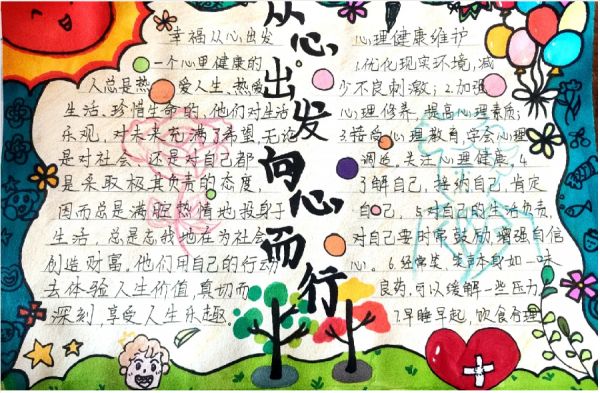 从心出发 向心而行
幸福从心出发
一个心理健康的
人总是热爱人生,热爱
生活,珍惜生命的,他们对生活
乐观,对未来充满了希望,无论
是对社会,还是对自己都
是采取极其负责的态度,
因而总是满腔热情地投身于
生活,总是忘我地在为社会
创造财富,他们用自己的行动
去体验人生价值,真切而
深刻,享受人生乐趣。
心理健康维护
1.优化现实环境,减
少不良刺激;2.加强
心理修养,提高心理素质;
3.接受心理教育,学会心理
调适,关注心理健康,4
了解自己,接纳自己,肯定
自己,5对自己的生活负责,
对自己要时常鼓励,增强自信
心。6.经常笑,笑声本身如一味
良药,可以缓解一些压力
7.早睡早起,饮食有理